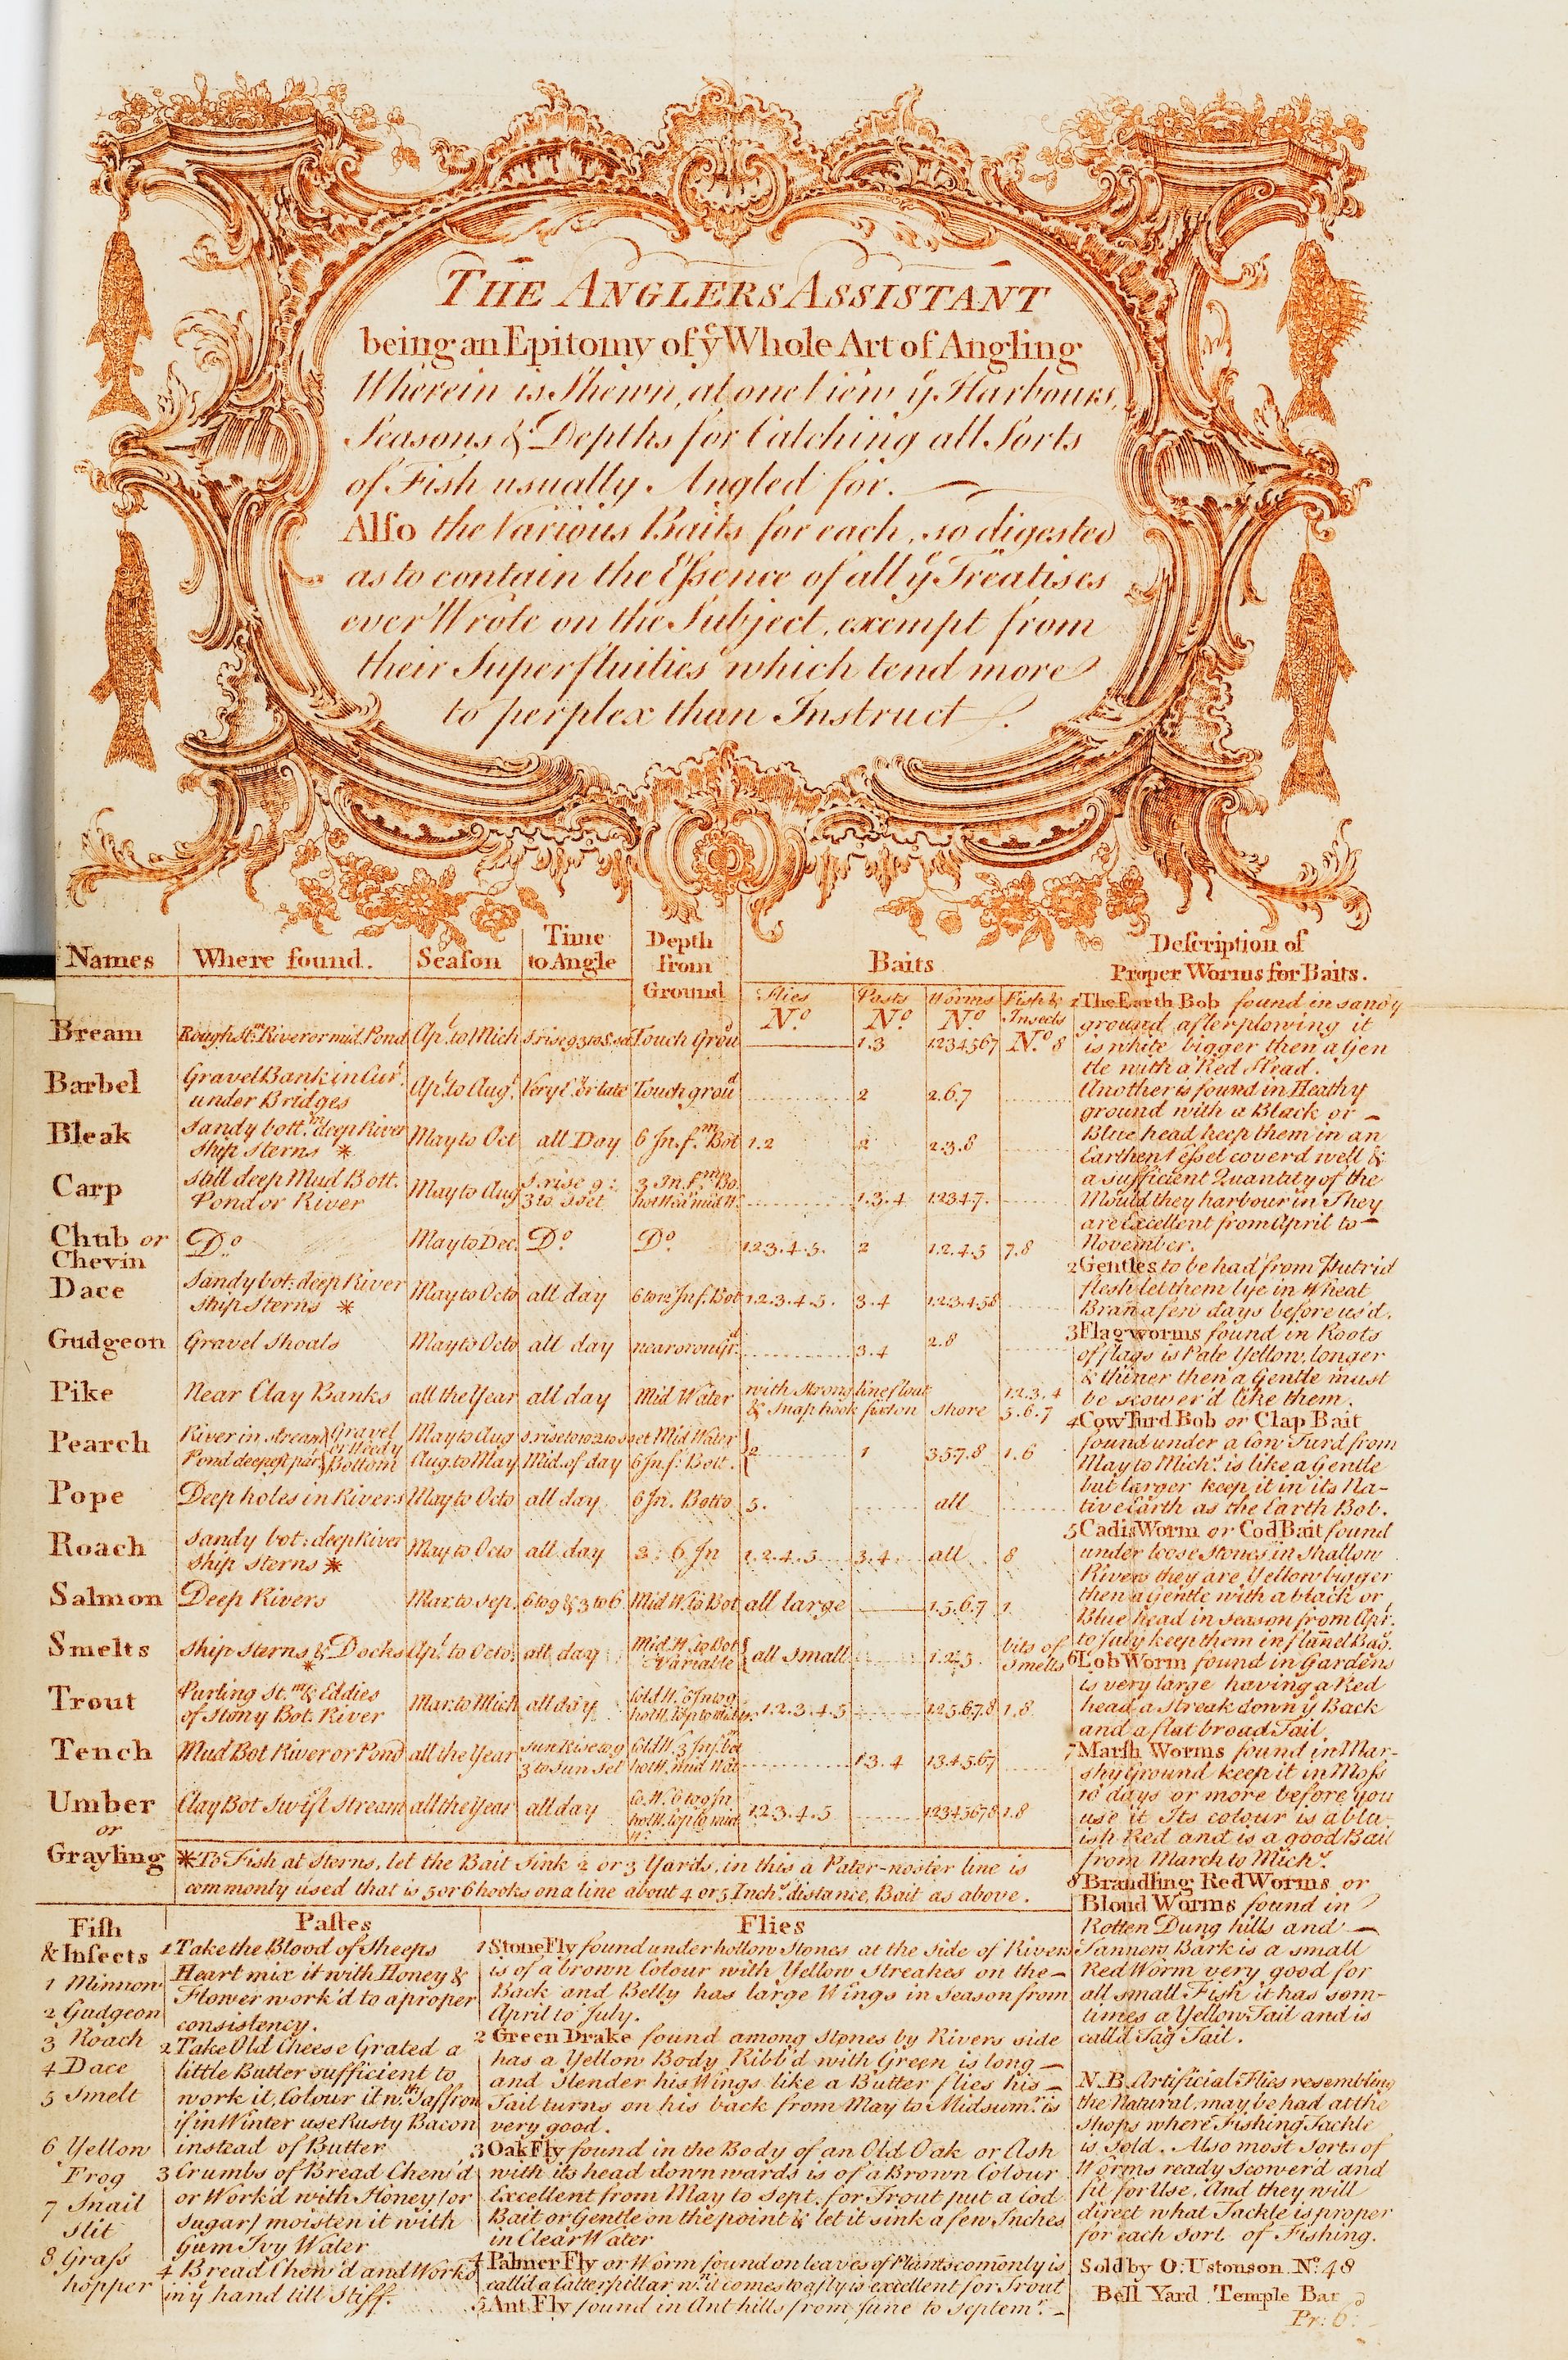 THE ANGLERS ASSISTANT
being an Epitomy of yᵉ Whole Art of Angling
Wherein is Shewn, at one View yᵉ Harbours,
Seasons & Depths for Catching all Sorts
of Fish usually Angled for.
Also the Various Baits for each, so digested
as to contain the Essence of all yᵉ Treatises
ever Wrote on the Subject, exempt from
their Superfluities which tend more
to perplex than Instruct.
Names Where found. Season Time to Angle Depth from Ground Baits
Flies No. Pasts No. Worms No. Fish & Insects No.
Bream Rough St.m River or mid. Pond Ap.l to Mich S.rise 9 3 to S.set Touch Grou.d 1.3 1234567 8
Barbel Gravel Bank in Cur.t under Bridges Ap.l to Aug.t Very E. or late Touch grou.d 2 2.6.7
Bleak Sandy bott.m deep River Ship Sterns * May to Oct all Day 6 In. f.m Bot 1.2 2 2.3.8
Carp Still deep Mud Bott. Pond or River May to Aug S.rise 9: 3 to Sset 3 In. f.m Bo. hot Wea mid W. 1.3.4 12347.
Chub or Chevin D.o May to Dec. D.o D.o 1.2.3.4.5. 2 1.2.4.5 7.8
Dace Sandy bot: deep River Ship Sterns * May to Octo all day 6 to 12 In f. Bot 1.2.3.4.5. 3.4 1.2.3.4.5 8
Gudgeon Gravel Shoals May to Octo all day near or on G.d 3.4 2.8
Pike Near Clay Banks all the Year all day Mid Water with Strong line flout & Snap hook fix'd on Shore 1.2.3.4 5.6.7
Pearch River in Stream Pond deepest part Gravel or Weedy Bottom May to Aug Aug. to May S.rise to 10 2 to Sset Mid. of day Mid Water 6 In f: Bott. 2 1 3.5.7.8 1.6
Pope Deep holes in Rivers May to Octo all day 6 In. Botto 5. all
Roach Sandy bot: deep River Ship Sterns * May to Octo all day 3: 6 In 1.2.4.5 3.4 all 8
Salmon Deep Rivers Mar. to Sep. 6 to 9 & 3 to 6 Mid W. to Bot all large 1.5.6.7 1
Smelts Ship Sterns & Docks * Ap.l to Octo. all day Mid. W. to Bot Variable all Small 1.2.3. bits of Smelts
Trout Purling St.m & Eddies of Stony Bot. River Mar. to Mich all day 1.2.3.4.5 1.2.5.6.7.8 1.8
Tench Mud Bot River or Pond all the Year Sun Rise to 9 3 to Sun Set Cold W. 3 In f. bot hot W. mid Wat 1 3.4 1 3.4.5.6 7
Umber or Grayling Clay Bot Swift Stream all the Year all day 1.2.3.4.5 12345678 1.8
*To Fish at Sterns, let the Bait Sink 2 or 3 Yards, in this a Pater-noster line is
commonly used that is 5 or 6 hooks on a line about 4 or 5 Inch.s distance, Bait as above.
Description of
Proper Worms for Baits.
1 The Earth Bob found in sandy
ground after plowing it
is white bigger then a Gen
tle with a Red Head.
Another is found in Heathy
ground with a Black or
Blue head keep them in an
Earthen Vessel coverd well &
a sufficient Quantity of the
Mould they harbour in They
are Excellent from April to
November.
2 Gentles to be had from Putrid
flesh let them lye in Wheat
Bran a few days before us'd.
3 Flagworms found in Roots
of flags is Pale Yellow, longer
& thiner then a Gentle must
be scower'd like them.
4 Cow Turd Bob or Clap Bait
found under a Cow Turd from
May to Mich.s is like a Gentle
but larger keep it in its Na-
tive Earth as the Earth Bob.
5 Cadis Worm or Cod Bait found
under loose Stones in Shallow
Rivers they are Yellow bigger
then a Gentle with a black or
Blue head in season from Apr.
to July keep them in flannel Bag.
6 Lob Worm found in Gardens
is very large having a Red
head a Streak down yᵉ Back
and a flat broad Tail.
7 Marsh Worms found in Mar-
shy Ground keep it in Moss
10 days or more before you
use it Its colour is a blu-
ish Red and is a good Bait
from March to Mich.s
8 Brandling Red Worms or
Bloud Worms found in
Rotten Dung hills and
Tanners Bark is a small
Red Worm very good for
all small Fish it has som-
times a Yellow Tail and is
call'd Tag Tail.
N.B. Artificial Flies resembling
the Natural, may be had at the
Shops where Fishing Tackle
is Sold. Also most Sorts of
Worms ready Scower'd and
fit for Use, And they will
direct what Tackle is proper
for each Sort of Fishing.
Sold by O: Ustonson No. 48
Bell Yard Temple Bar
Pr: 6.d
Fish
& Insects
1 Minnow
2 Gudgeon
3 Roach
4 Dace
5 Smelt
6 Yellow
Frog
7 Snail
Slit
8 Grass
hopper
Pastes
1 Take the Blood of Sheeps
Heart mix it with Honey &
Flower work'd to a proper
consistency.
2 Take Old Cheese Grated a
little Butter sufficient to
work it, Colour it w.th Saffron
if in Winter use Rusty Bacon
instead of Butter
3 Crumbs of Bread Chew'd
or Work'd with Honey (or
Sugar) moisten it with
Gum Ivy Water
4 Bread Chew'd and Work'd
in yᵉ hand till Stiff.
Flies
1 Stone Fly found under hollow Stones at the side of Rivers
is of a brown Colour with Yellow Streakes on the
Back and Belly has large Wings in Season from
April to July.
2 Green Drake found among Stones by Rivers side
has a Yellow Body Ribb'd with Green is long
and Slender his Wings like a Butter flies his
Tail turns on his back from May to Midsum.r is
very good.
3 Oak Fly found in the Body of an Old Oak or Ash
with its head downwards is of a Brown Colour
Excellent from May to Sept. for Trout put a Cod
Bait or Gentle on the point & let it sink a few Inches
in Clear Water
4 Palmer Fly or Worm found on leaves of Plants comonly is
call'd a Catterpillar w.n it comes to a fly is excellent for Trout
5 Ant Fly found in Ant hills from June to Septem.r